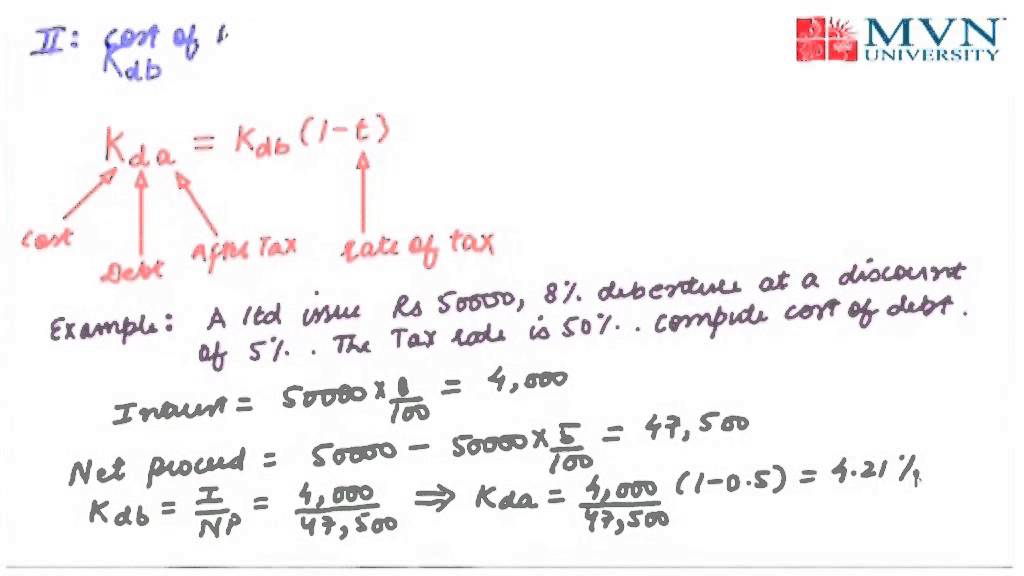 II: cost of
MVN
UNIVERSITY
Kdb
Kda = Kdb (1-t)
Cost
Debt
After Tax
Rate of tax
Example: A ltd issue Rs 50000, 8% debenture at a discount
of 5%. The Tax rate is 50%. . compute cost of debt.
Interest = 50000 × 8/100 = 4,000
Net proceed = 50000 - 50000 × 5/100 = 47,500
Kdb = I/NP = 4,000/47,500 ⇒ Kda = 4,000/47,500 (1-0.5) = 4.21%